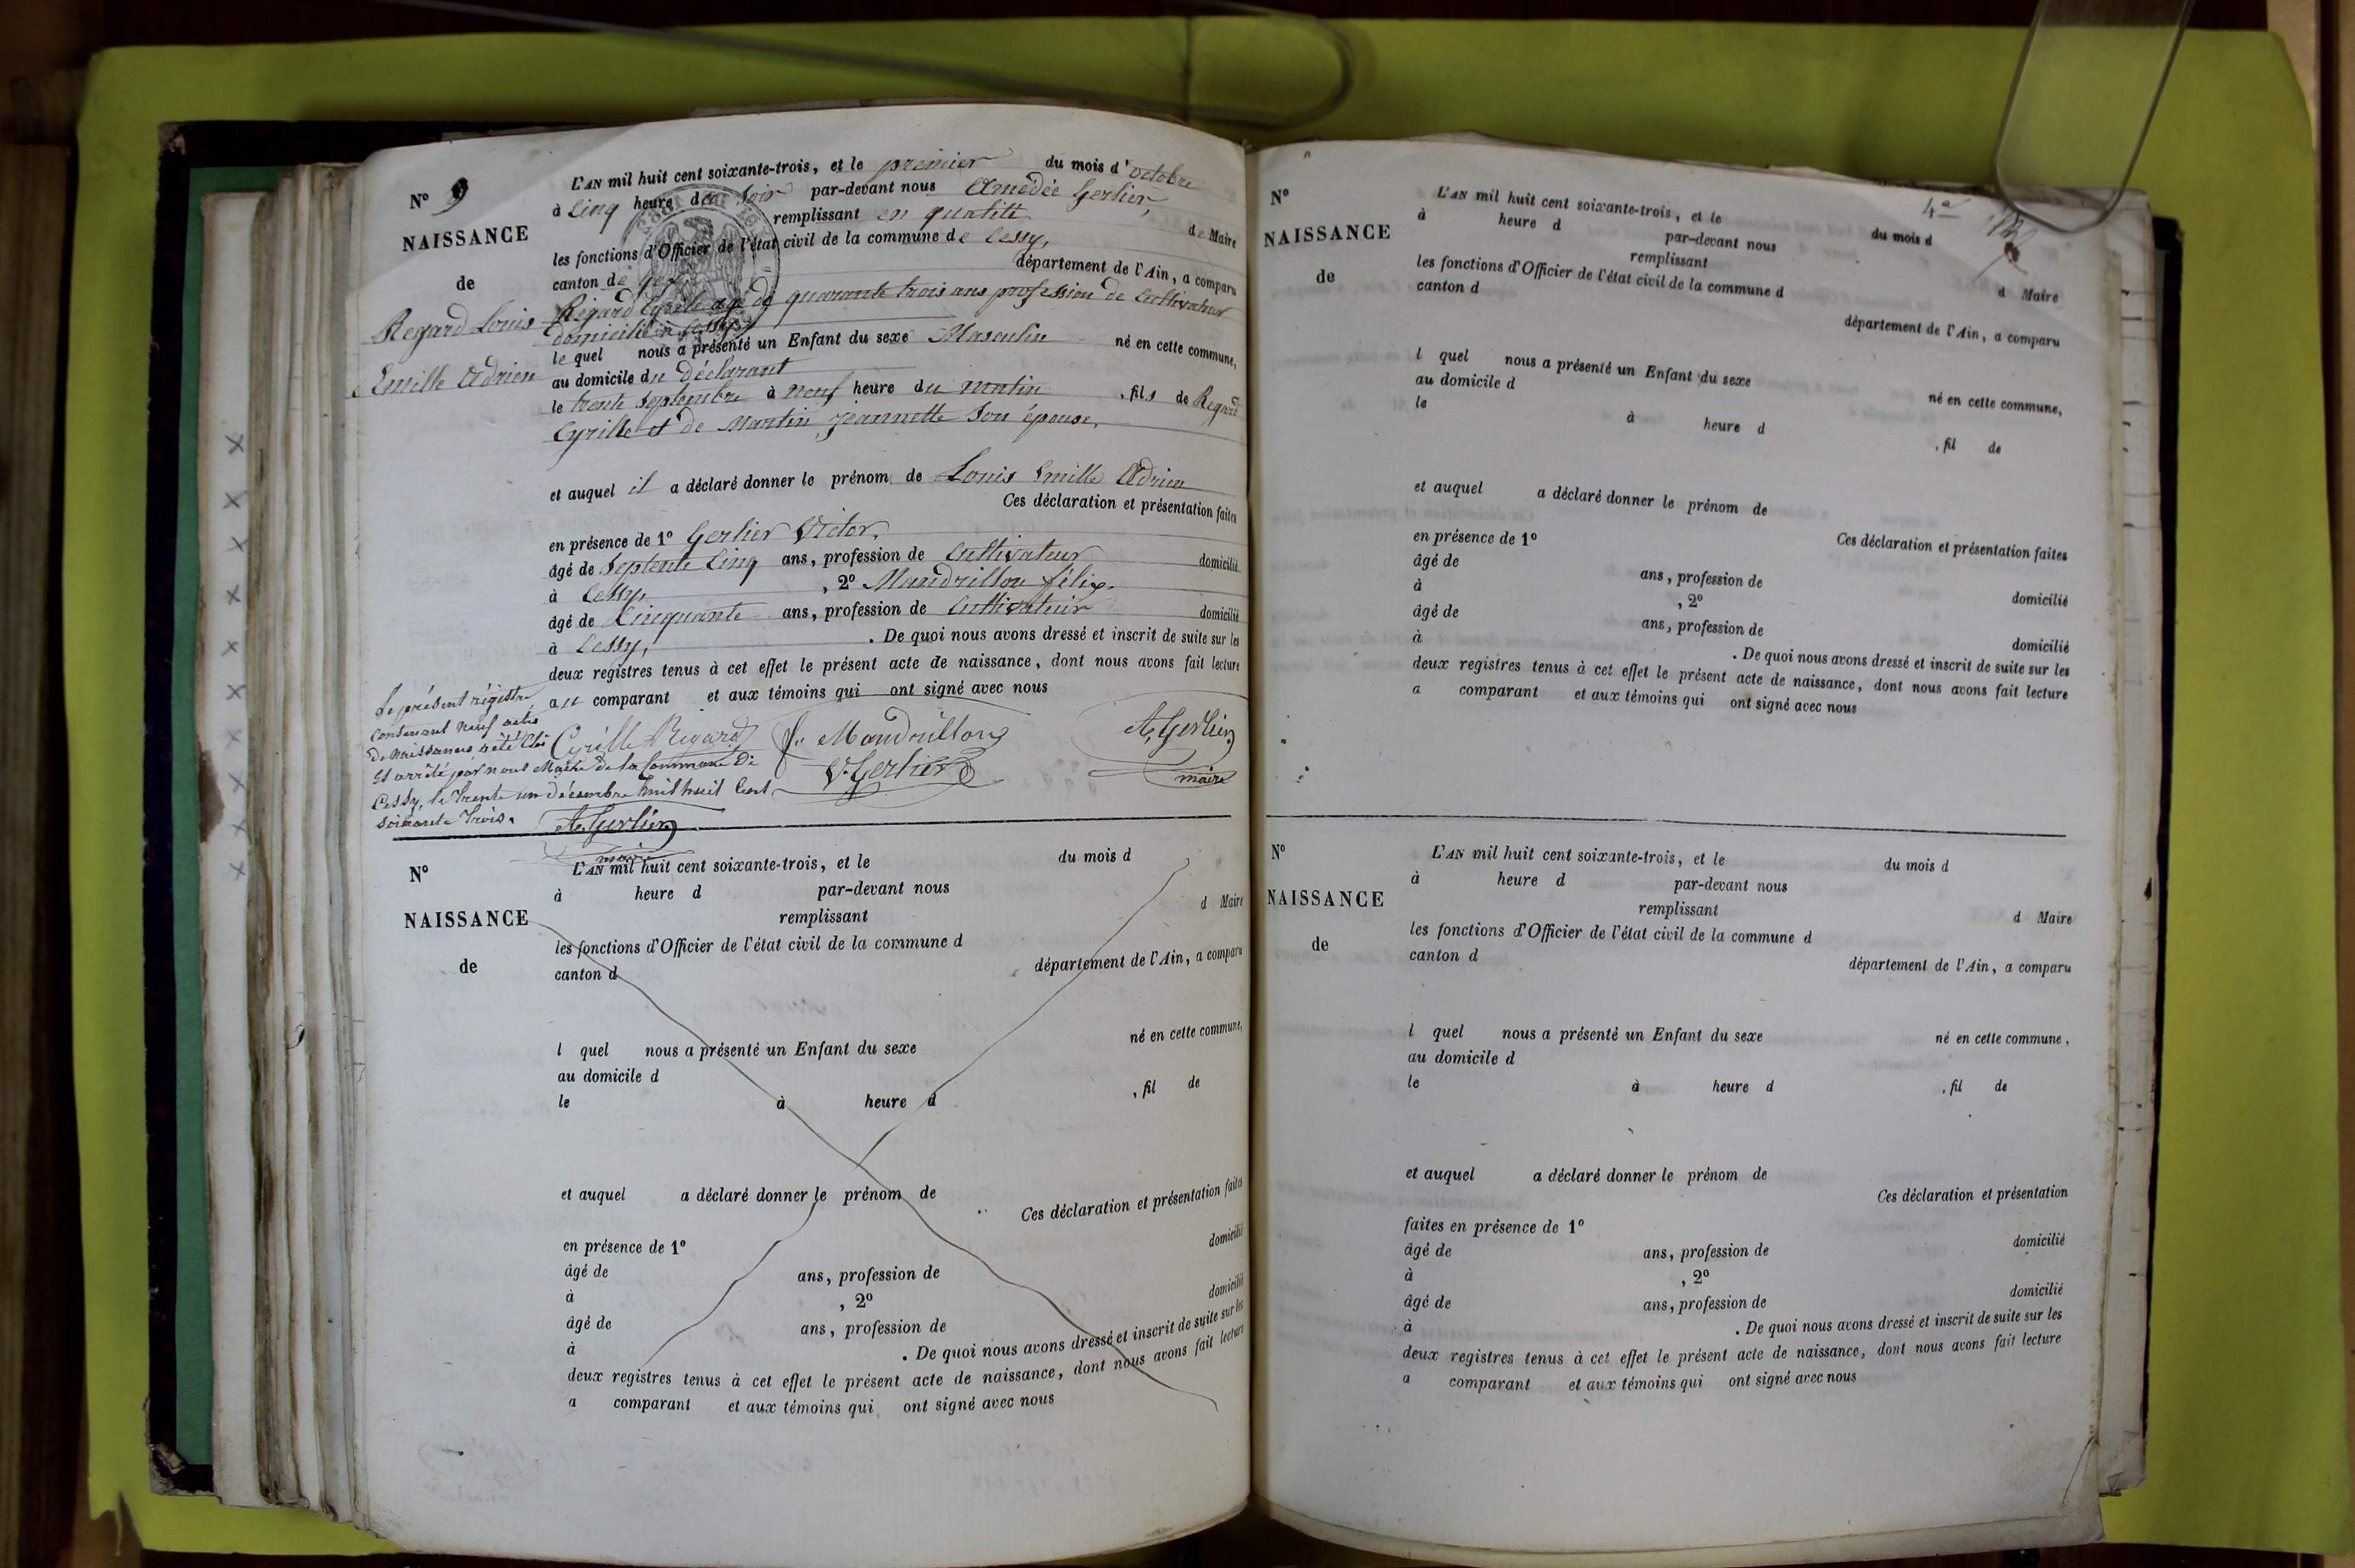 N° 9
NAISSANCE
de
Regard Louis
Emille Adrien
L'AN mil huit cent soixante-trois, et le premier du mois d'octobre
à Cinq heure du Soir par-devant nous Amédée Gerlier,
remplissant en qualité de Maire
les fonctions d'Officier de l'état civil de la commune de Cessy,
canton de Gex département de l'Ain, a comparu
Regard Cyrille agé de quarante trois ans profession de Cultivateur
domicilié à Cessy
le quel nous a présenté un Enfant du sexe Masculin né en cette commune,
au domicile du déclarant
le trente Septembre à neuf heure du matin , fils de Regard
Cyrille et de Martin Jeannette Son épouse,
et auquel il a déclaré donner le prénom de Louis Emille Adrien
Ces déclaration et présentation faites
en présence de 1° Gerlier Victor,
âgé de Septente Cinq ans, profession de Cultivateur domicilié
à Cessy, , 2° Mandrillon félix,
âgé de Cinquante ans, profession de Cultivateur domicilié
à Cessy, . De quoi nous avons dressé et inscrit de suite sur les
deux registres tenus à cet effet le présent acte de naissance, dont nous avons fait lecture
au comparant et aux témoins qui ont signé avec nous
Cyrille Regard f. Mandrillon A. Gerlier
V. Gerlier maire
Le présent régistre
contenant neuf actes
De Naissances a été Clos
Et arrêté par nous Maire de la Commune de
Cessy, le trente un décembre mil huit Cent
Soixante trois.
A. Gerlier
maire
N°
NAISSANCE
de
L'AN mil huit cent soixante-trois, et le du mois d
à heure d par-devant nous
remplissant d Maire
les fonctions d'Officier de l'état civil de la commune d
canton d département de l'Ain, a comparu
l quel nous a présenté un Enfant du sexe né en cette commune,
au domicile d
le à heure d , fil de
et auquel a déclaré donner le prénom de
Ces déclaration et présentation faites
en présence de 1°
âgé de ans, profession de domicilié
à , 2°
âgé de ans, profession de domicilié
à . De quoi nous avons dressé et inscrit de suite sur les
deux registres tenus à cet effet le présent acte de naissance, dont nous avons fait lecture
a comparant et aux témoins qui ont signé avec nous
N°
NAISSANCE
de
L'AN mil huit cent soixante-trois, et le du mois d
à heure d par-devant nous
remplissant d Maire
les fonctions d'Officier de l'état civil de la commune d
canton d département de l'Ain, a comparu
l quel nous a présenté un Enfant du sexe né en cette commune,
au domicile d
le à heure d , fil de
et auquel a déclaré donner le prénom de
Ces déclaration et présentation faites
en présence de 1°
âgé de ans, profession de domicilié
à , 2°
âgé de ans, profession de domicilié
à . De quoi nous avons dressé et inscrit de suite sur les
deux registres tenus à cet effet le présent acte de naissance, dont nous avons fait lecture
a comparant et aux témoins qui ont signé avec nous
N°
NAISSANCE
de
L'AN mil huit cent soixante-trois, et le du mois d
à heure d par-devant nous
remplissant d Maire
les fonctions d'Officier de l'état civil de la commune d
canton d département de l'Ain, a comparu
l quel nous a présenté un Enfant du sexe né en cette commune,
au domicile d
le à heure d , fil de
et auquel a déclaré donner le prénom de
Ces déclaration et présentation
faites en présence de 1°
âgé de ans, profession de domicilié
à , 2°
âgé de ans, profession de domicilié
à . De quoi nous avons dressé et inscrit de suite sur les
deux registres tenus à cet effet le présent acte de naissance, dont nous avons fait lecture
a comparant et aux témoins qui ont signé avec nous